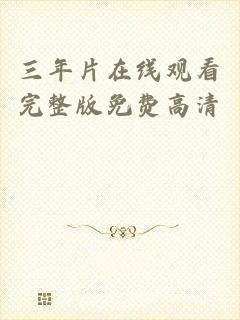 三年片在线观看
完整版免费高清